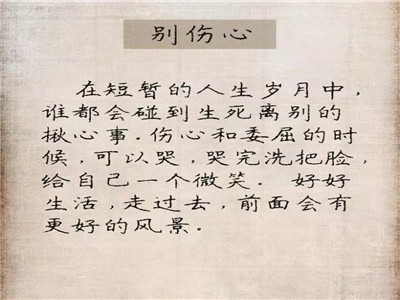 别伤心
在短暂的人生岁月中，
谁都会碰到生死离别的
揪心事．伤心和委屈的时
候，可以哭，哭完洗把脸，
给自己一个微笑． 好好
生活，走过去，前面会有
更好的风景．